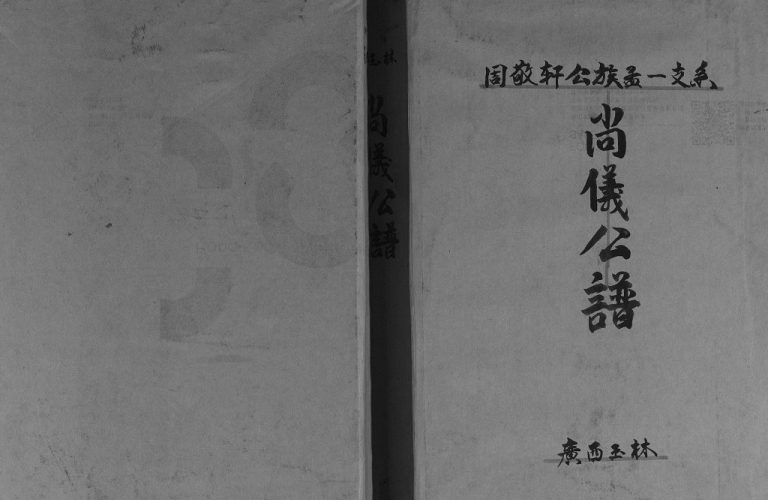 周敬轩公族孟一支系
尚儀公譜
廣西玉林
玉林
尚儀公譜